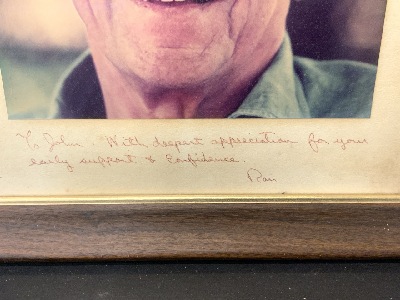 To John - With deepest appreciation for your
early support & Confidence.
Ron